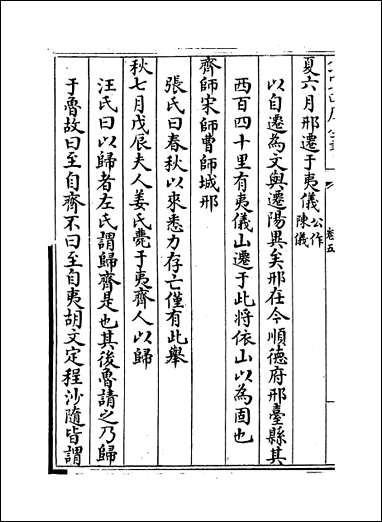 夏六月邢遷于夷儀公作陳儀
以自遷為文與遷陽異矣邢在今順德府邢臺縣其
西百四十里有夷儀山遷于此將依山以為固也
齊師宋師曹師城邢
張氏曰春秋以來悉力存亡僅有此舉
秋七月戊辰夫人姜氏薨于夷齊人以歸
汪氏曰以歸者左氏謂歸齊是也其後魯請之乃歸
于魯故曰至自齊不曰至自夷胡文定程沙隨皆謂
卷五